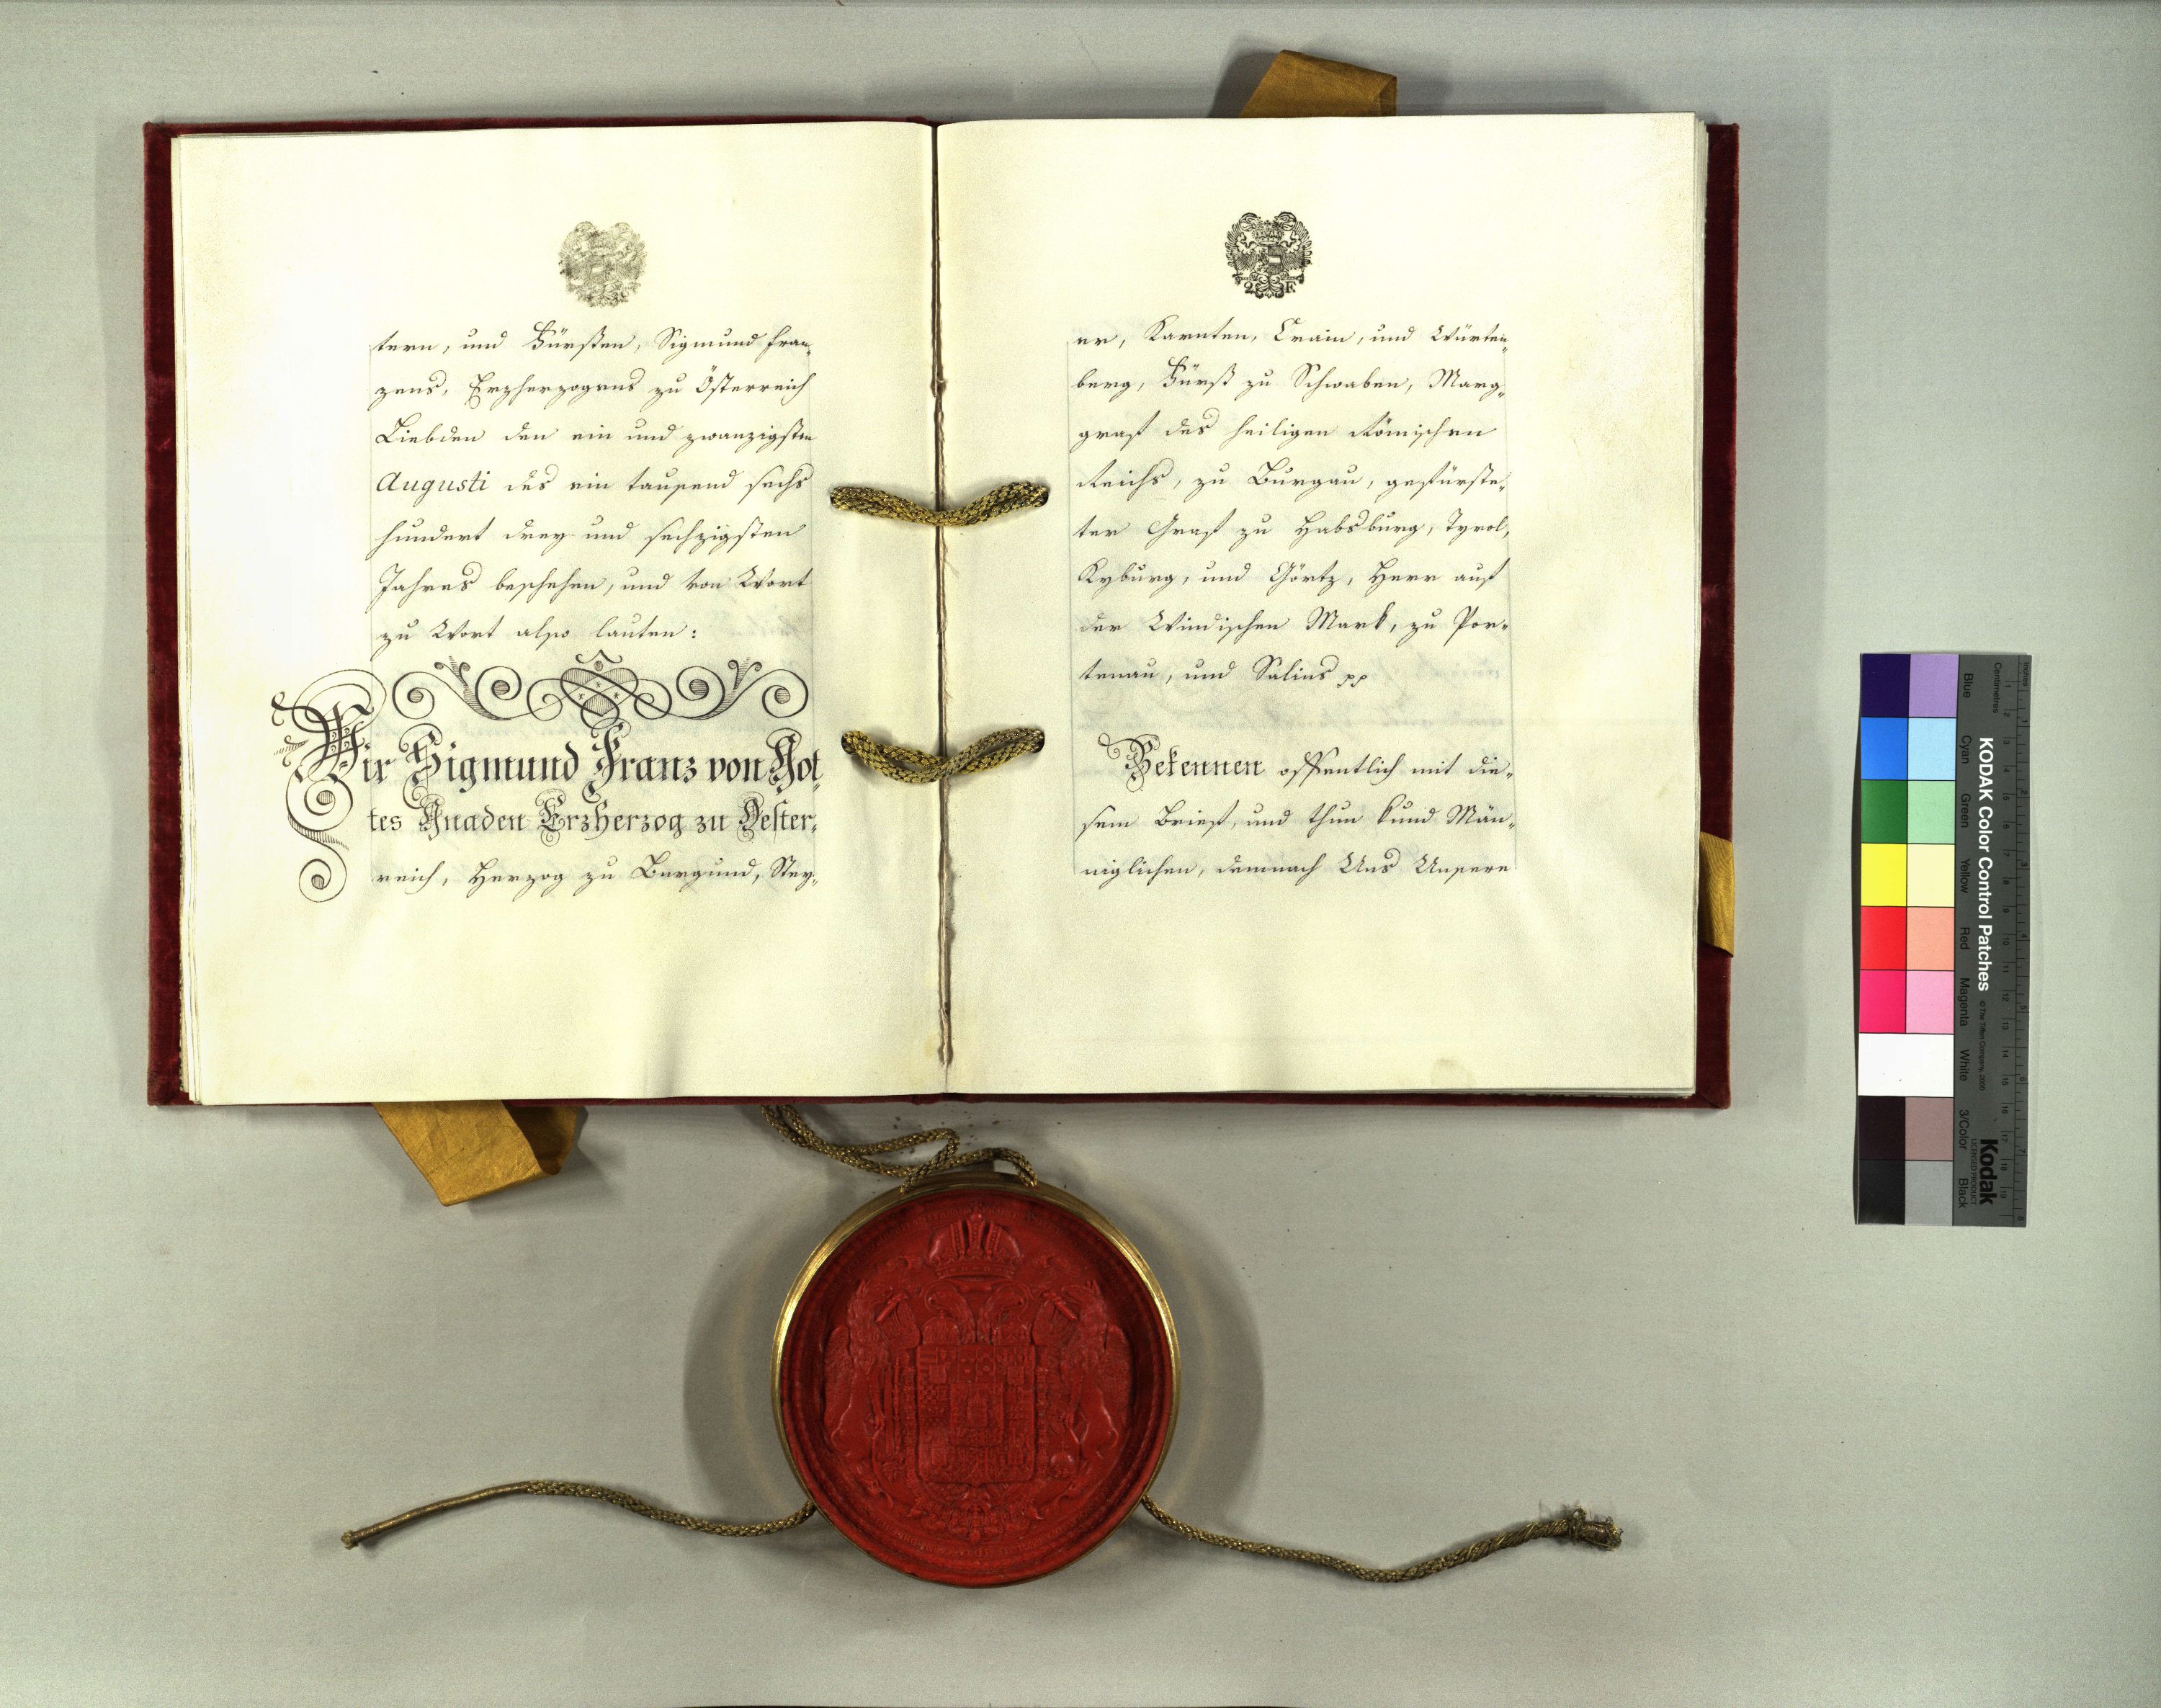 tern, und Fürsten, Sigmund Fran„
zens, Erzherzogens zu Österreich
Liebden den ein und zwanzigsten
Augusti des ein tausend sechs
hundert drey und sechzigsten
Jahres beschehen, und von Wort
zu Wort also lauten:
Wir Sigmund Franz von Got„
tes Gnaden Erzherzog zu Oester„
reich, Herzog zu Burgund, Stey„
2 F.
er, Karnten, Crain, und Würten„
berg, Fürst zu Schwaben, Marg„
graf des heiligen Römischen
Reichs, zu Burgau, gefürste„
ter Graf zu Habsburg, Tyrol,
Kyburg, und Görtz, Herr auf
der Windischen Mark, zu Por„
tenau, und Salins pp
Bekennen offentlich mit die„
sem Brief, und thun kund Män„
niglichen, demnach Uns Unsere
KODAK Color Control Patches
© The Tiffen Company, 2000
Kodak
LICENSED PRODUCT
Inches
Centimetres
Blue
Cyan
Green
Yellow
Red
Magenta
White
3/Color
Black